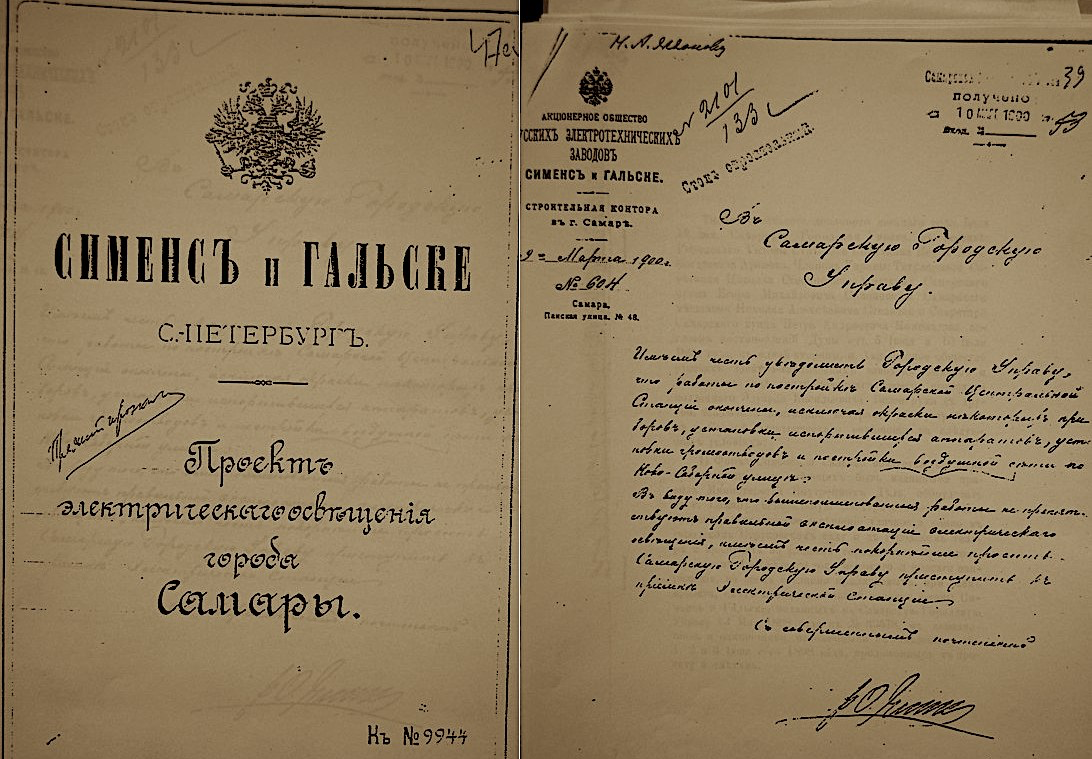 47
СИМЕНСЪ и ГАЛЬСКЕ
С.-ПЕТЕРБУРГЪ.
Проектъ
электрическаго освѣщенія
города
Самары.
Къ №9944
39
№ 2101
133
ПОЛУЧЕНО
53
АКЦІОНЕРНОЕ ОБЩЕСТВО
УССКИХЪ ЭЛЕКТРОТЕХНИЧЕСКИХЪ
ЗАВОДОВЪ
СИМЕНСЪ и ГАЛЬСКЕ.
СТРОИТЕЛЬНАЯ КОНТОРА
въ г. Самарѣ.
Марта 1900 г.
№ 604
Самара,
Панская улица. № 48.
Въ
Самарскую Городскую
Управу.
Имѣемъ честь увѣдомить Городскую Управу,
что работы по постройкѣ Самарской Центральной
Станціи окончены, исключая окраски нѣкоторыхъ при-
боровъ, установки испортившихся аппаратовъ, уста-
новки громоотводовъ и постройки воздушной сѣти по
Ново-Соборной улицѣ.
Въ виду того, что вышепоименованныя работы не препят-
ствуютъ правильной эксплоатаціи электрическаго
освѣщенія, имѣемъ честь покорнѣйше просить
Самарскую Городскую Управу приступить къ
пріемкѣ Электрической Станціи.
Съ совершеннымъ почтеніемъ